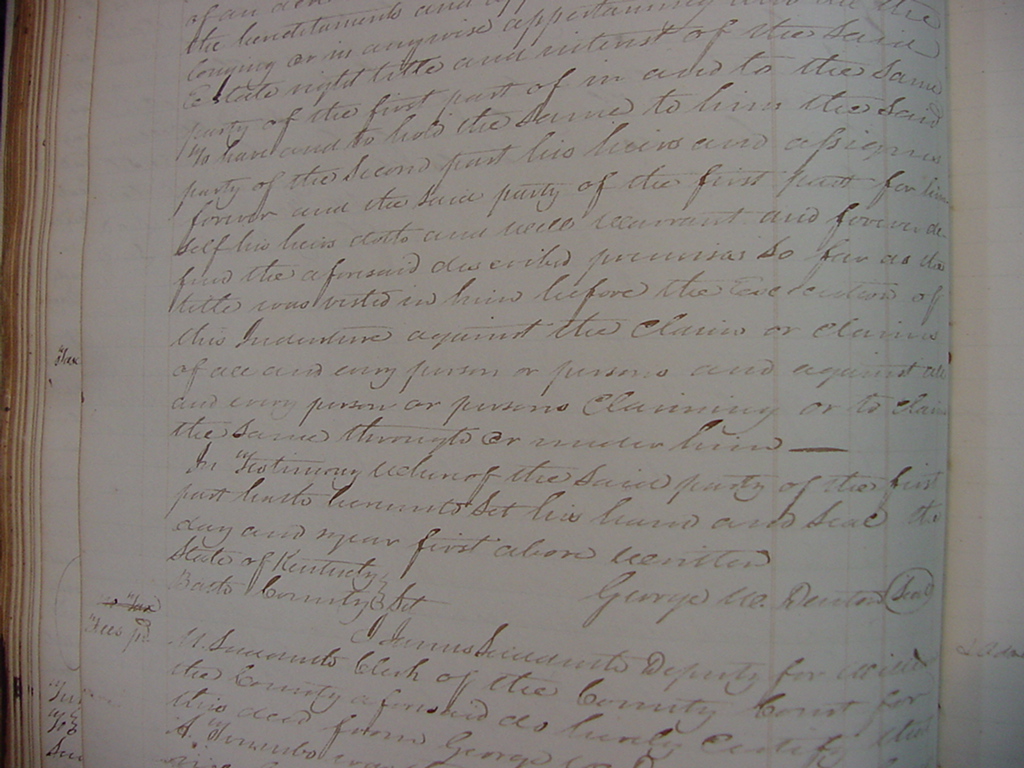 of an
the hereditaments and
longing or in anywise appertaining and all the
Estate right title and interest of the said
party of the first part of in and to the same
To have and to hold the same to him the said
party of the Second part his heirs and assigns
forever and the said party of the first part for him
self his heirs doth and will warrant and forever de
fend the aforesaid described premises so far as the
title was vested in him before the Execution of
this Indenture against the Claim or Claims
of all and every person or persons and against all
and every person or persons Claiming or to Claim
the same through or under him —
In Testimony whereof the said party of the first
part hath hereunto Set his hand and Seal the
day and year first above written
State of Kentucky
Bath County Sct
George W. Denton Seal
Tax
Fees pd
I James Sudduth Deputy for
M. Sudduth Clerk of the County Court for
the County aforesaid do hereby Certify that
this deed from George
A. Trumbo